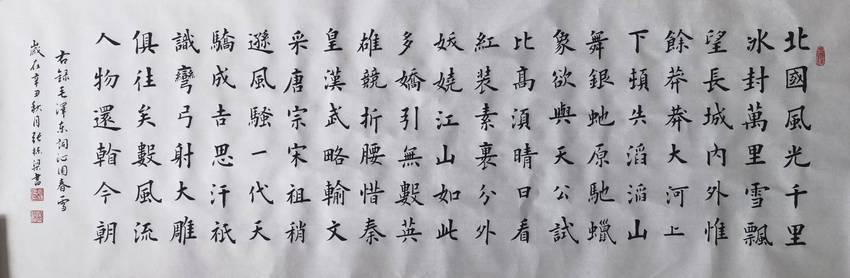 北國風光千里
冰封萬里雪飄
望長城内外惟
餘莽莽大河上
下頓失滔滔山
舞銀虵原馳蠟
象欲與天公試
比高須晴日看
紅装素裹分外
妖嬈江山如此
多嬌引無數英
雄競折腰惜秦
皇漢武略輸文
采唐宗宋祖稍
遜風騷一代天
驕成吉思汗祇
識彎弓射大雕
俱往矣數風流
人物還今朝
右録毛澤东詞沁园春雪
歲在辛丑秋月张栋梁書